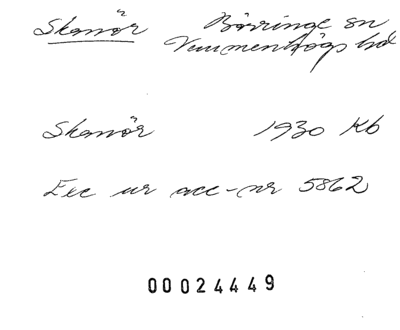 Skanör Börringe sn
Vemmenhögs hd
Skanör 1930 Kb
Exc ur acc-nr 5862
00024449